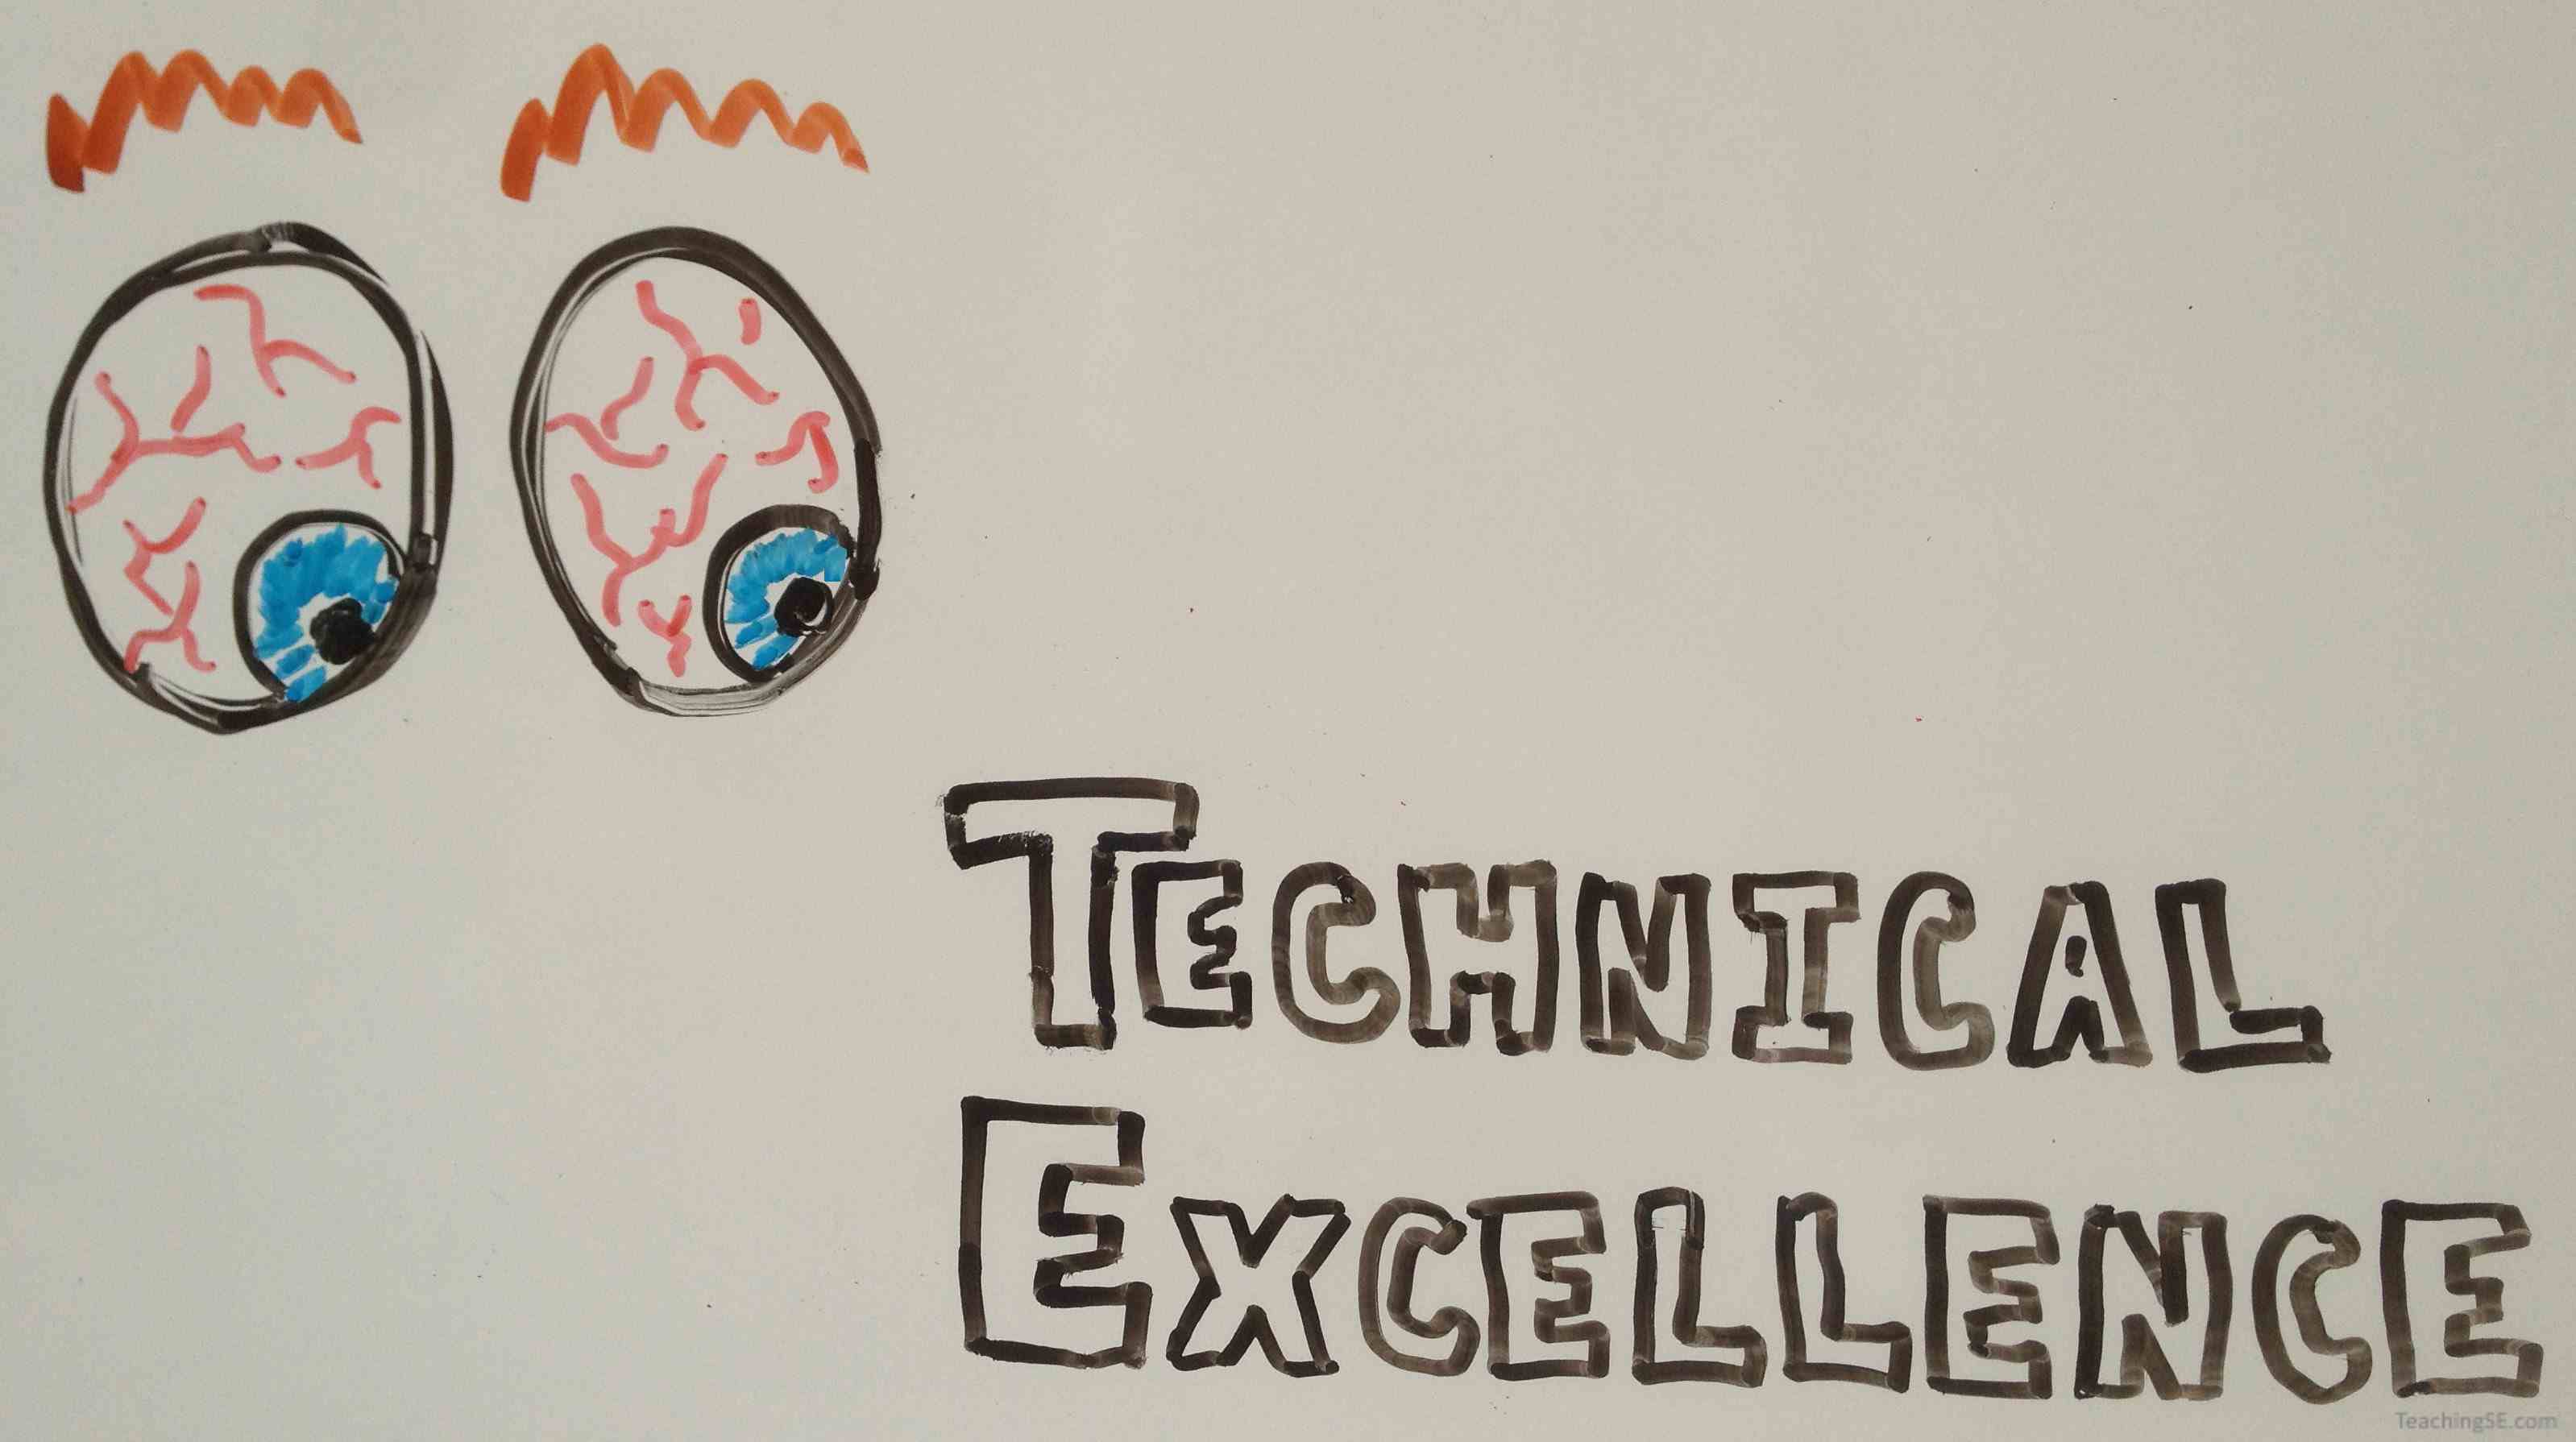 TECHNICAL
EXCELLENCE
TeachingSE.com